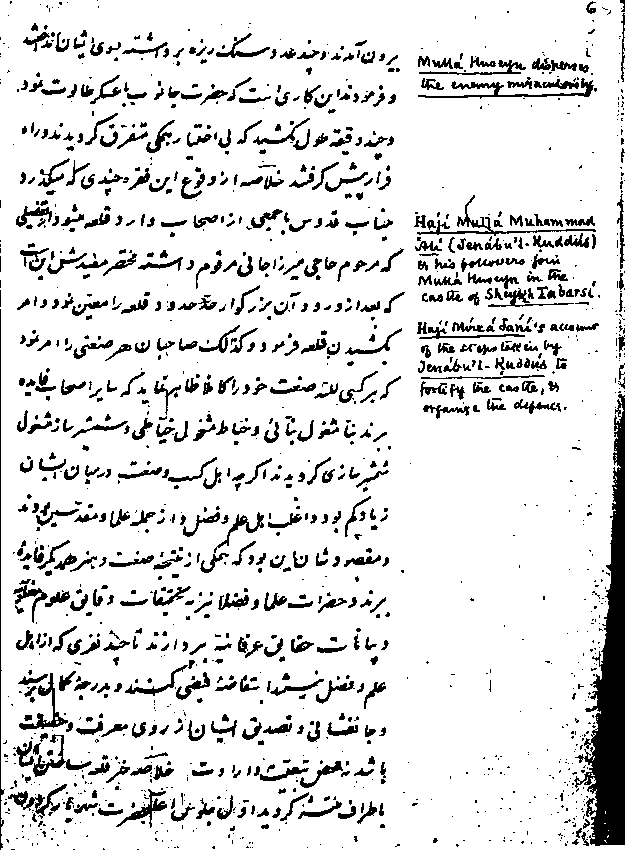 6
بیرون آمدند و چند عدد سنک ریزه برداشته بسوی ایشان انداختند
و فرمودند این کاری است که حضرت با عسکر طالوت نمود
و چند دقیقه طول نکشید که بی اختیار همکی متفرق کردیدند و راه
فرار پیش کرفتند خلاصه از وقوع این فقره چندی که میکذرد
جناب قدوس با جمعی از اصحاب وارد قلعه میشود
که مرحوم حاجی میرزا جانی مرقوم داشته مختصر مفیدش این است
که بعد از ورود آن بزرکوار حدود قلعه را معین نمود و امر
بکشیدن قلعه فرمود و کذلک صاحبان هر صنعتی را امر نمود
که هر کسی صنعت خود را کاملا ظاهر نماید که سایر اصحاب فایده
برند بنا مشغول بنائی و خیاط مشغول خیاطی و شمشیر ساز مشغول
شمشیر سازی کردیدند اکرچه اهل کسب و صنعت در میان ایشان
زیاد کم بود و اغلب اهل علم و فضل و از جمله علما و مقدسین بودند
و مقصودشان این بود که همکی از نتیجه صنعت و هنر همدیکر فایده
ببرند و حضرات علما و فضلا نیز به تحقیقات دقایق علوم
و بیانات حقایق عرفانیه بپردازند تا چند نفری که از اهل
علم و فضل نیستند استفاضه فیض کنند و بدرجه کمال برسند
و جانفشانی و تصدیق ایشان از روی معرفت و حقیقت
باشد نه محض تبعیت و ارادت خلاصه خبر قلعه ساختن ایشان
باطراف منتشر کردید اول جلوس اعلیحضرت شهریار
Mullá Huseyn disperses
the enemy miraculously.
Haji Mullá Muhammad
Ali (Jenábu'l-Kuddús)
& his followers join
Mullá Huseyn in the
castle of Sheykh Tabarsí.
Haji Mirzá Jani's account
of the steps taken by
Jenábu'l-Kuddús to
fortify the castle, &
organize the defence.